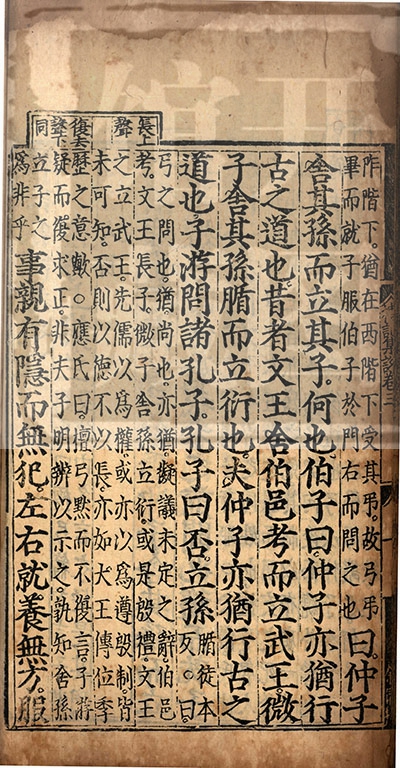 阼階下。猶在西階下受其弔。故弓弔
畢而就子服伯子於門右而問之也
曰。仲子
舍其孫而立其子。何也。伯子曰。仲子亦猶行
古之道也。昔者文王舍伯邑考而立武王。微
子舍其孫腯而立衍也。夫仲子亦猶行古之
道也。子游問諸孔子。孔子曰。否。立孫
腯徒本
反。曰
長上
聲
弓之問也。猶尚也。亦猶擬議未定之辭。伯邑
考。文王長子。微子舍孫立衍。或是殷禮。文王
之立武王。先儒以為權。或亦以為遵殷制。皆
未可知。否則以德不以長。亦如大王傳位季
復去
聲下
同
歷之意歟。應氏曰。檀弓默而不復言。子游
疑而復求正。非夫子明辨以示之。孰知舍孫
立子之
為非乎
事親有隱而無犯。左右就養無方。服